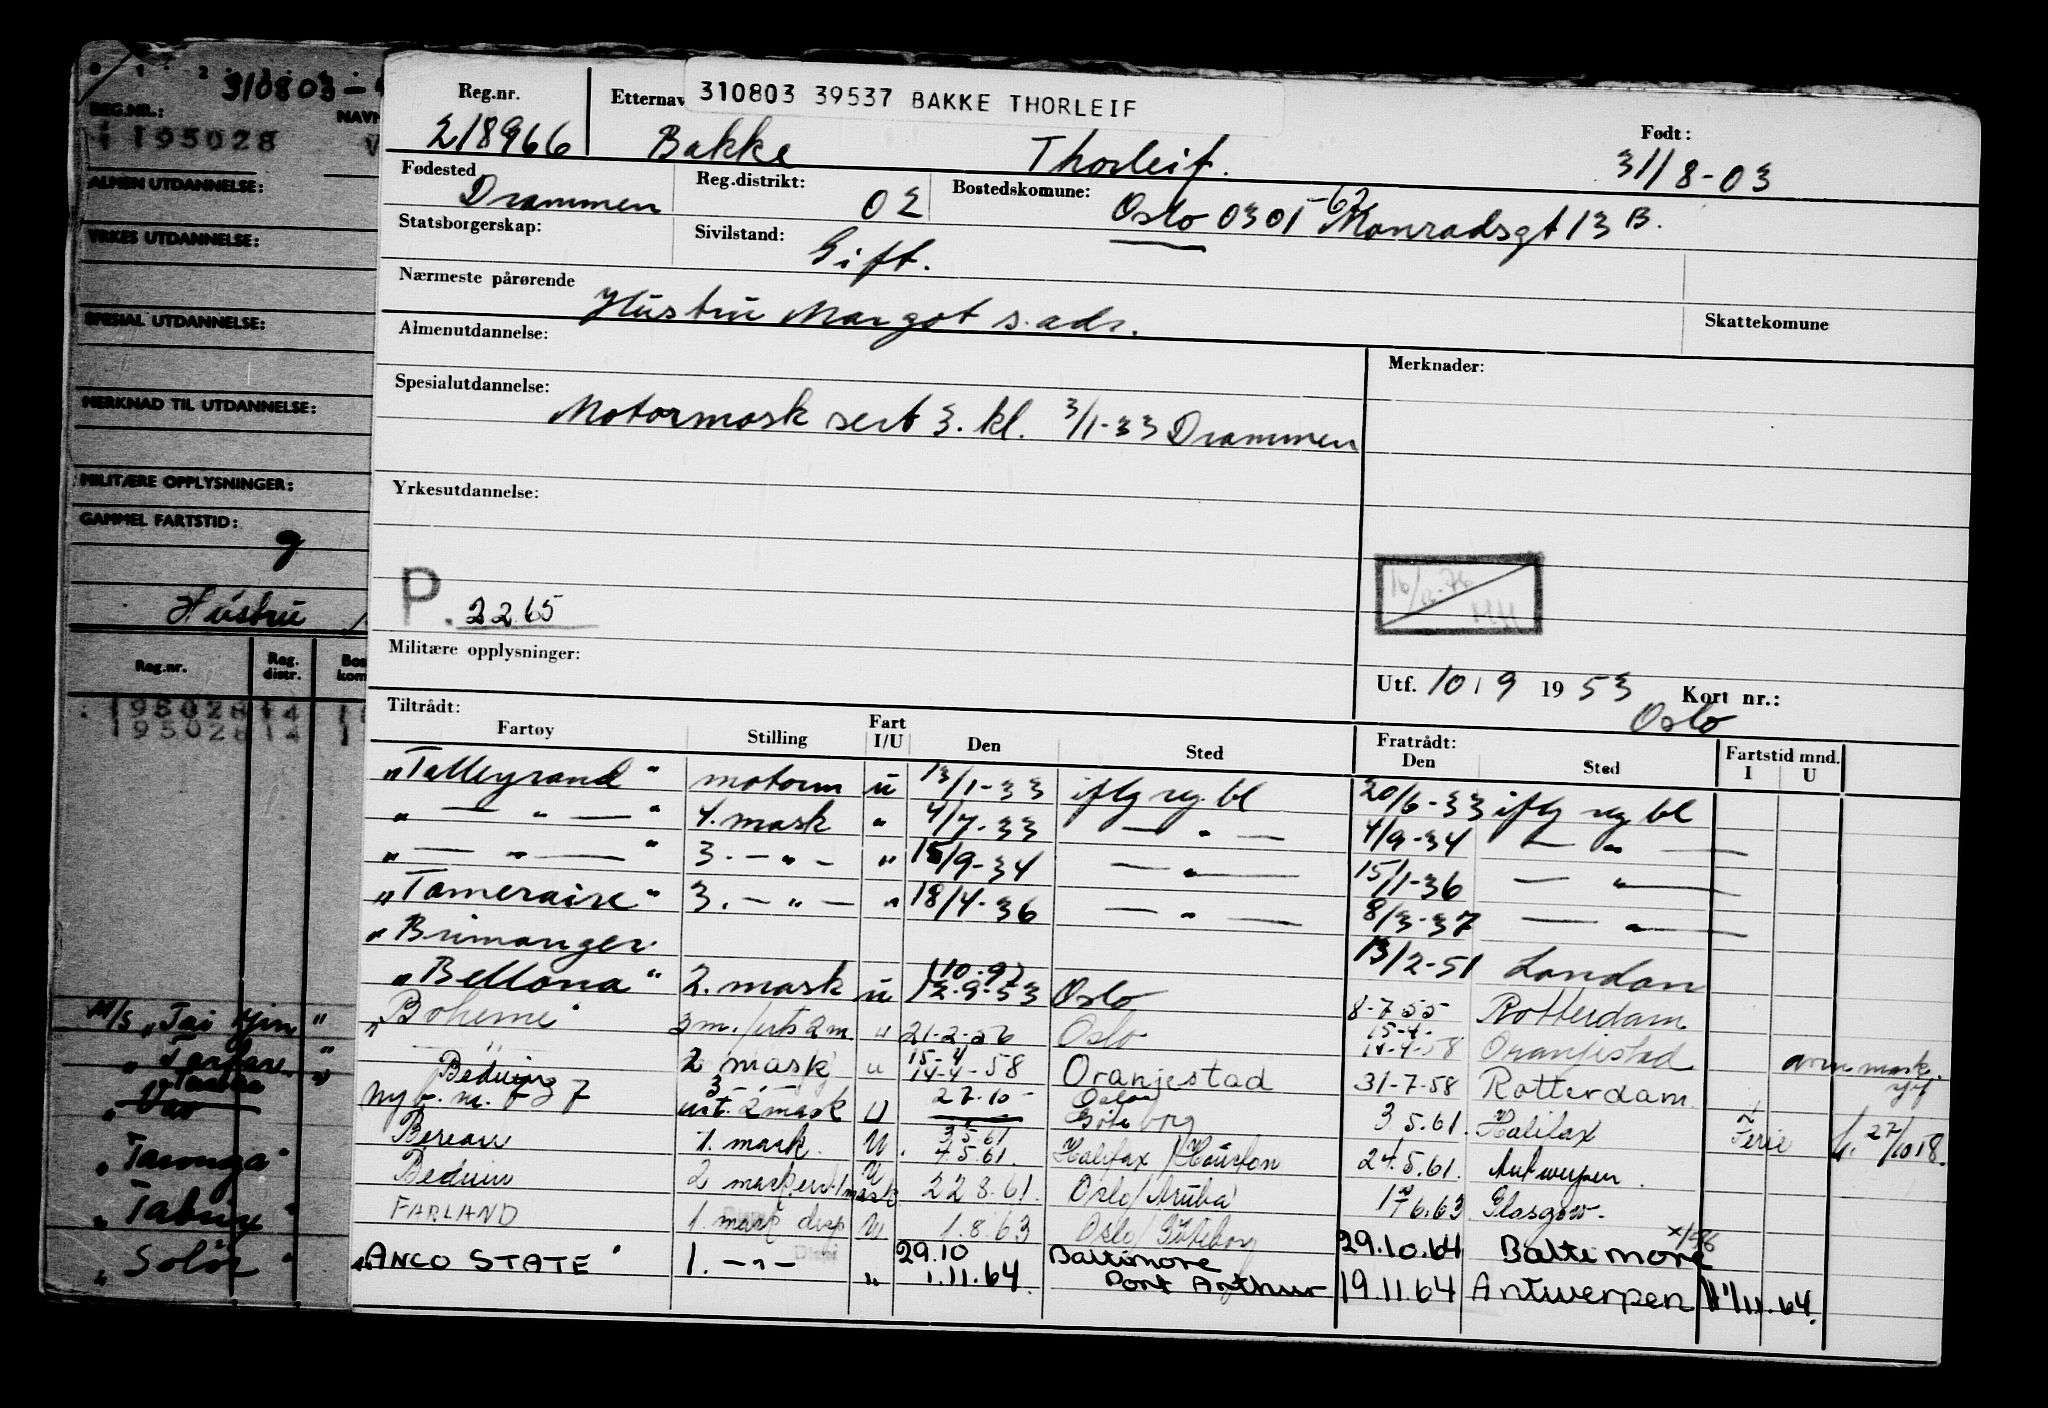 310803
REG.NR.:
NAVN
195028
ALMEN UTDANNELSE:
YRKES UTDANNELSE:
SPESIAL UTDANNELSE:
MERKNAD TIL UTDANNELSE:
MILITÆRE OPPLYSNINGER:
GAMMEL FARTSTID:
Hustru
Reg.nr. Reg. distr.
195028 14
195028 14
M/S "Tai Yin"
"Tasonga"
"Solør"
310803 39537 BAKKE THORLEIF
Reg.nr. Etternav Født:
218966 Bakke Thorleif. 31/8-03
Fødested Reg.distrikt: Bostedskomune:
Drammen 02 Oslo 0301 -62 Monradsgt 13 B.
Statsborgerskap: Sivilstand: Gift.
Nærmeste pårørende
Hustru Margot s. adr.
Almenutdannelse: Skattekomune
Merknader:
Spesialutdannelse:
Motormask sert 3. kl. 3/1-33 Drammen
Yrkesutdannelse:
P. 2265
HH
Militære opplysninger:
Utf. 10/9 1953 Kort nr.:
Oslo
Tiltrådt: Fratrådt:
Fartøy Stilling Fart I/U Den Sted Den Sted Fartstid mnd. I U
"Talleyrand" motorm u 13/1-33 iflg reg. bl 20/6-33 iflg reg bl
" — " — " 4. mask " 4/7-33 — " — 4/9-34 — " —
" — " — " 3. — " — " 15/9-34 — " — 15/1-36 — " —
"Tameraire" 3. — " — " 18/4-36 — " — 8/3-37 — " —
"Brimanger 13/2-51 London
"Bellona" 2. mask u 12-9-53 Oslo 8-7-55 Rotterdam
"Boheme" " 21-2-56 Oslo 15-4- 14-4-58 Oranjestad
Beduin 2 mask " 15-4 14-4-58 Oranjestad 31-7-58 Rotterdam
Nyb. m. 737 3 2 mask U 27.10 Oslo Göteborg 3.5.61. Halifax Ferie 27/10 58.
Berean 1. mask. U. 3.5.61 4.5.61. Halifax/Houston 24.5.61. Antwerpen.
Beduin 2 mask U 22 8.61. Oslo/Aruba 6.63 Glasgow.
FARLAND 1. mask disp U 1.8.63 Oslo/Göteborg 29.10.64 Baltimore
"ANCO STATE" 1. — " — " 29.10 1.11.64. Baltimore Port Arthur 19.11.64 Antwerpen 11.64.